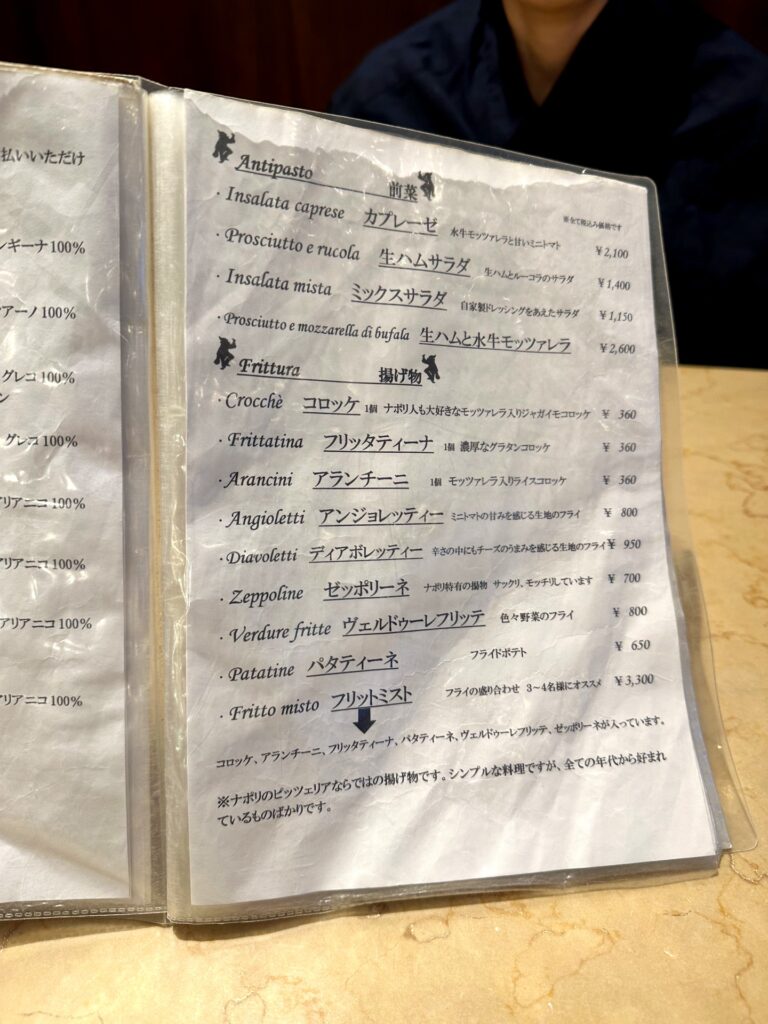 払いいただけ
ンギーナ 100%
アーノ 100%
グレコ 100%
ン
グレコ 100%
アリアニコ 100%
アリアニコ 100%
アリアニコ 100%
アリアニコ 100%
Antipasto 前菜
※全て税込み価格です
・Insalata caprese カプレーゼ 水牛モッツァレラと甘いミニトマト ¥2,100
・Prosciutto e rucola 生ハムサラダ 生ハムとルーコラのサラダ ¥1,400
・Insalata mista ミックスサラダ 自家製ドレッシングをあえたサラダ ¥1,150
・Prosciutto e mozzarella di bufala 生ハムと水牛モッツァレラ ¥2,600
Frittura 揚げ物
・Crocchè コロッケ 1個 ナポリ人も大好きなモッツァレラ入りジャガイモコロッケ ¥ 360
・Frittatina フリッタティーナ 1個 濃厚なグラタンコロッケ ¥ 360
・Arancini アランチーニ 1個 モッツァレラ入りライスコロッケ ¥ 360
・Angioletti アンジョレッティー ミニトマトの甘みを感じる生地のフライ ¥ 800
・Diavoletti ディアボレッティー 辛さの中にもチーズのうまみを感じる生地のフライ ¥ 950
・Zeppoline ゼッポリーネ ナポリ特有の揚物 サックリ、モッチリしています ¥ 700
・Verdure fritte ヴェルドゥーレフリッテ 色々野菜のフライ ¥ 800
・Patatine パタティーネ フライドポテト ¥ 650
・Fritto misto フリットミスト フライの盛り合わせ 3～4名様にオススメ ¥3,300
コロッケ、アランチーニ、フリッタティーナ、パタティーネ、ヴェルドゥーレフリッテ、ゼッポリーネが入っています。
※ナポリのピッツェリアならではの揚げ物です。シンプルな料理ですが、全ての年代から好まれ
ているものばかりです。